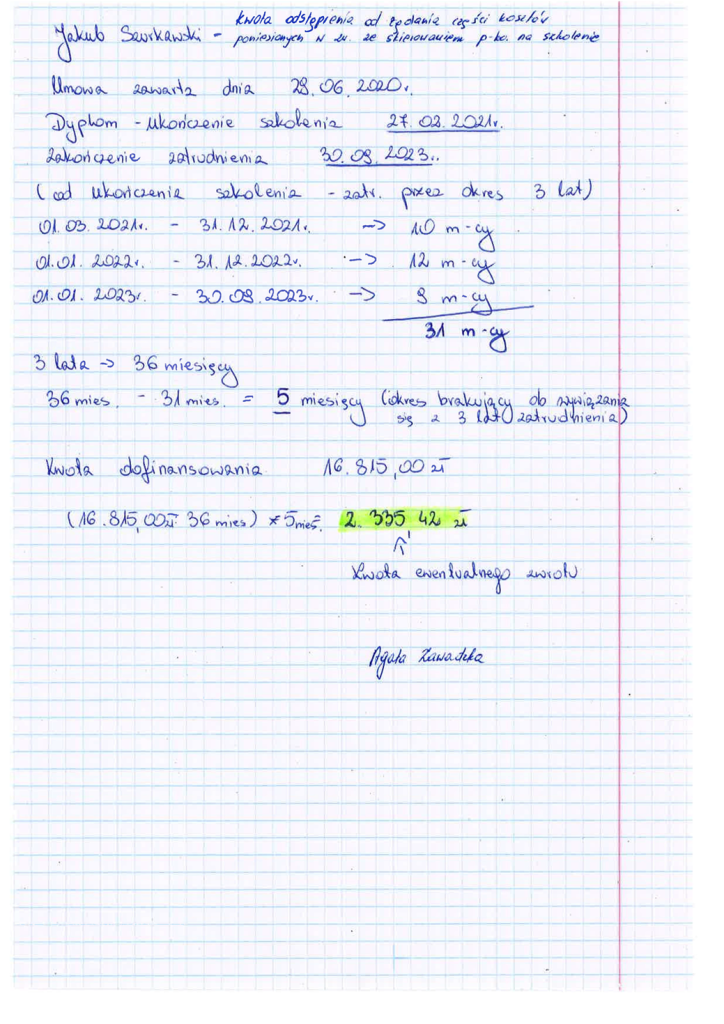 Jakub Szurkawski - kwota odstąpienia od żądania części kosztów
poniesionych w zw. ze skierowaniem p-ko. na szkolenie
Umowa zawarta dnia 29.06.2020r.
Dyplom - ukończenie szkolenia 27.02.2021r.
Zakończenie zatrudnienia 30.09.2023r.
(od ukończenia szkolenia - zatr. przez okres 3 lat)
01.03.2021r. - 31.12.2021r. -> 10 m-cy
01.01.2022r. - 31.12.2022r. -> 12 m-cy
01.01.2023r. - 30.09.2023r. -> 9 m-cy
31 m-cy
3 lata -> 36 miesięcy
36 mies. - 31 mies. = 5 miesięcy (okres brakujący do wywiązania
się z 3 lat zatrudnienia)
Kwota dofinansowania 16.815,00 zł
(16.815,00zł: 36 mies) * 5 mies = 2.335,42 zł
Kwota ewentualnego zwrotu
Agata Zawadzka